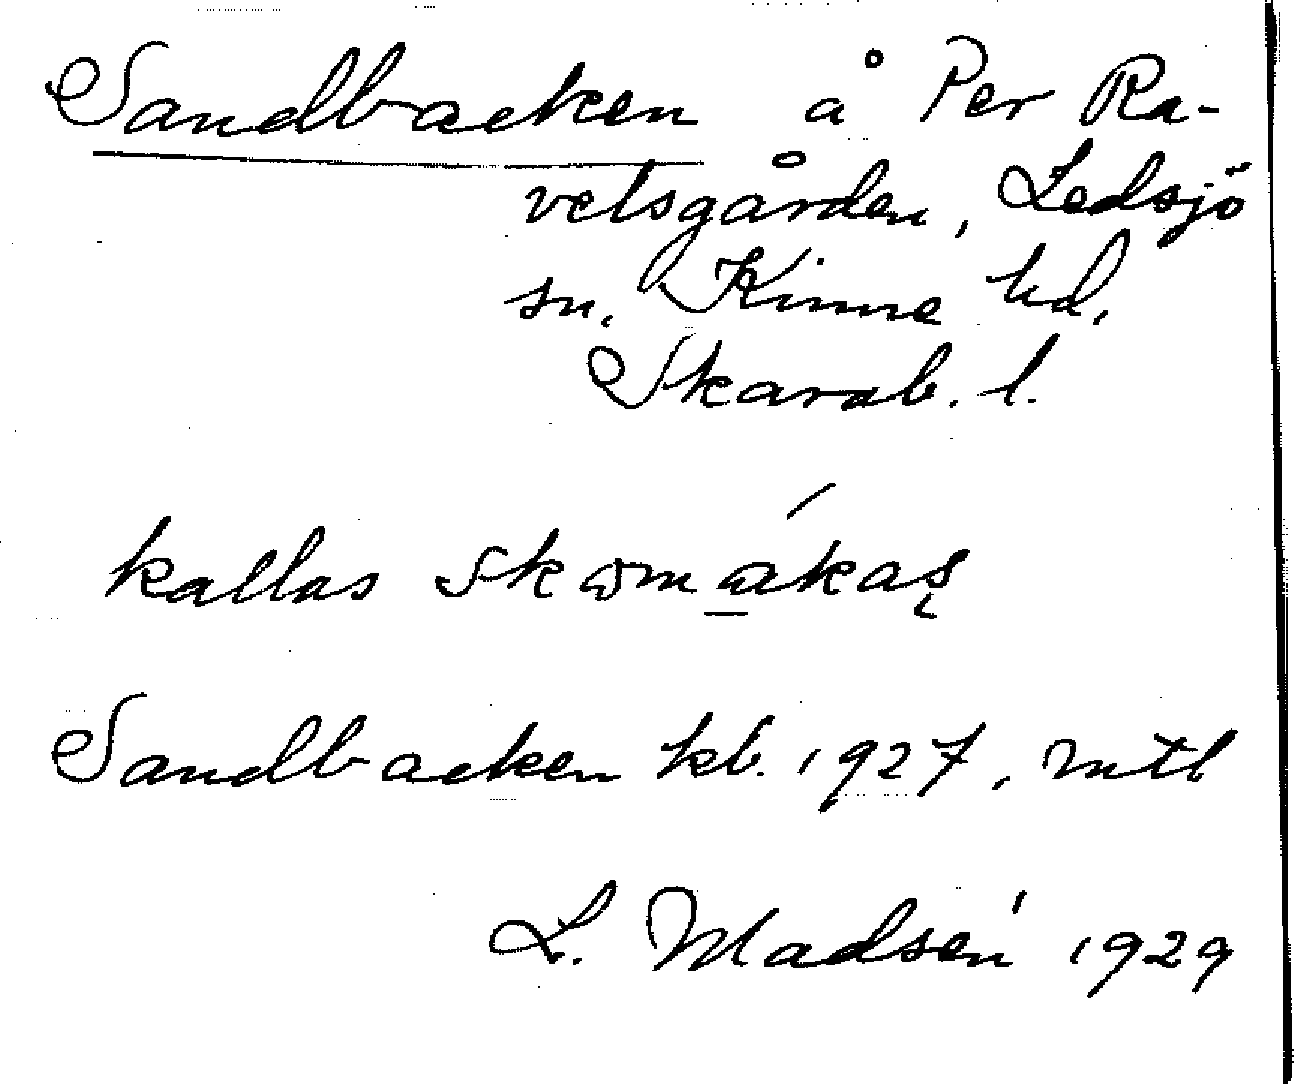 Sandbacken å Per Ra-
velsgården, Ledsjö
sn. Kinne hd.
Skarab. l.
kallas skɷmákaş
Sandbacken kb. 1927, mtl
L. Madsén 1929